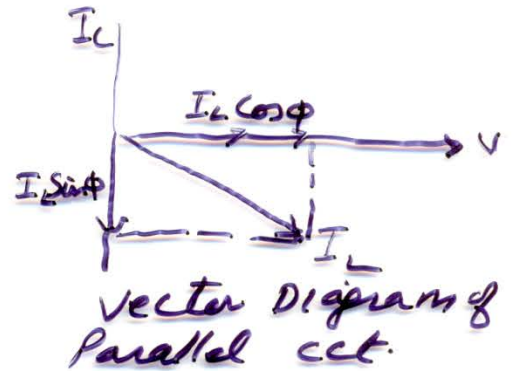 I_C
I_L Cosφ
V
I_L Sinφ
I_L
Vector Diagram of
Parallel cct.